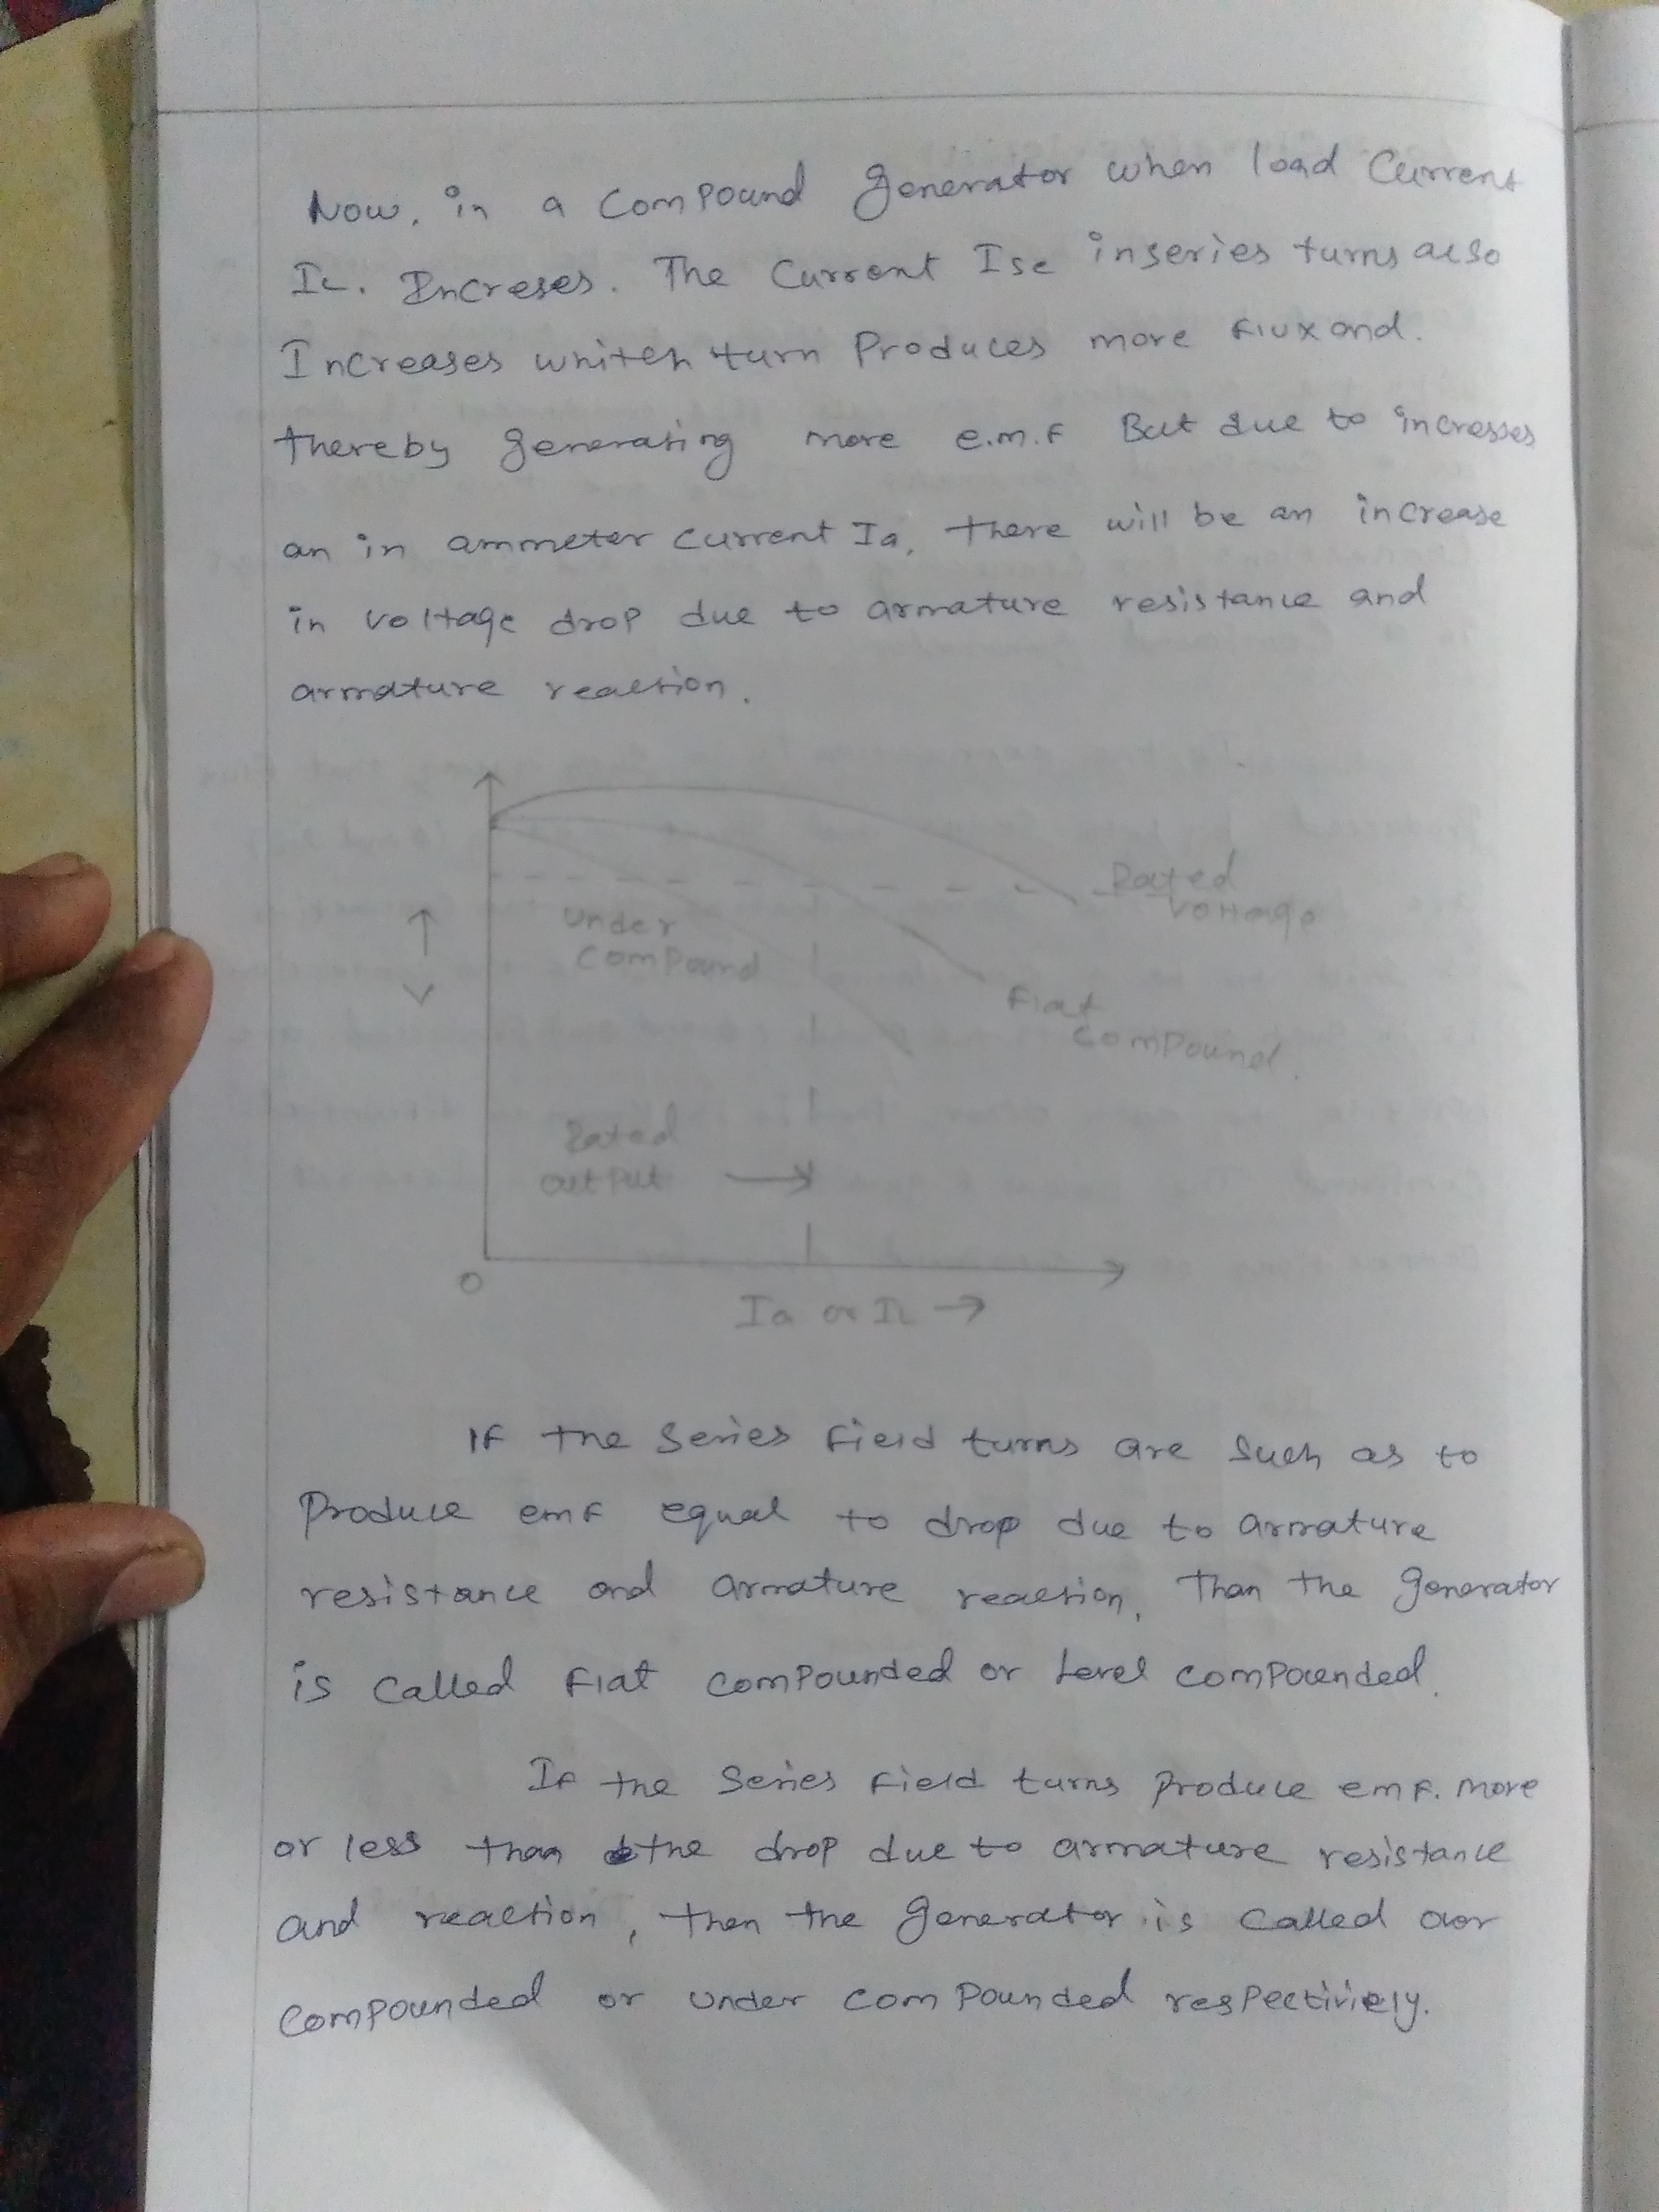 Now, in a Compound generator when load Current
IL. Increses. The Current Ise inseries turns also
Increases whiteh turn Produces more flux and.
thereby generating more e.m.f But due to incresses
an in ammeter current Ia, there will be an increase
in voltage drop due to armature resistance and
armature reaction.
Rated
voltage
under
compound
↑
V
Flat
compound.
Rated
output →
O
Ia or IL →
If the series field turns are such as to
Produce emf equal to drop due to armature
resistance and armature reaction, Than the generator
is called flat compounded or level compounded.
If the series field turns produce emf. more
or less than the drop due to armature resistance
and reaction, then the generator is called over
compounded or under compounded respectiviely.